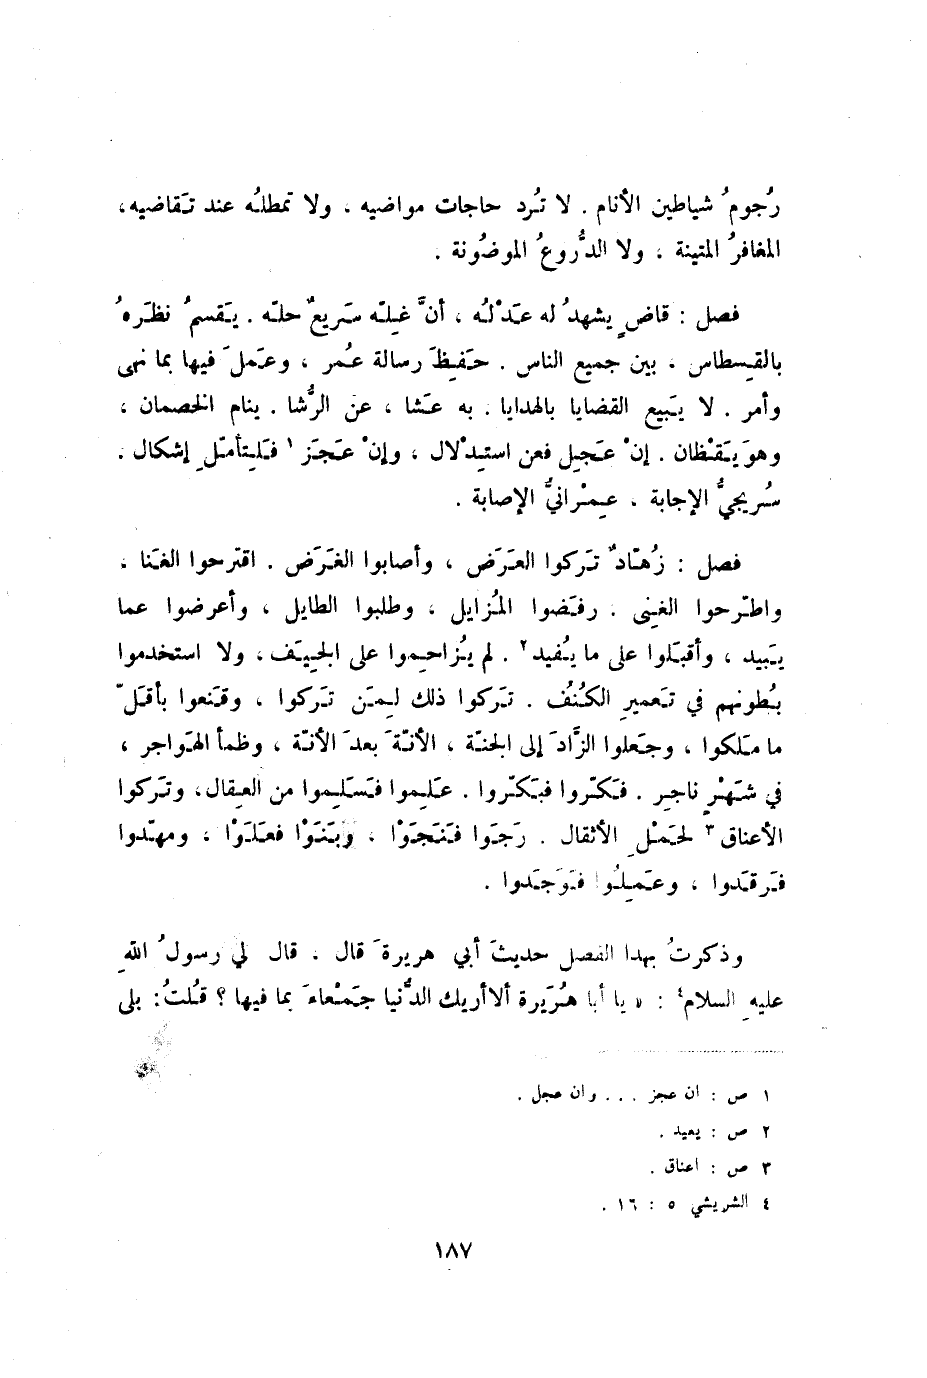 رُجومُ شياطين الأنام . لا تُرد حاجات مواضيه ، ولا تمطلُه عند تَقاضيه ،
المغافرُ المتينة ، ولا الدُّروعُ الموضُونة .
فصل : قاضٍ يشهدُ له عَدْلُه ، أنَّ غيلتَه سَريعٌ حلتَه . يَقسمُ نظَرهُ
بالقِسطاس ، بين جميع الناس . حَفِيظَ رسالة عُمر ، وعَملَ فيها بما نهى
وأمر . لا يَبيع القضايا بالهدايا . به عَشا ، عن الرُّشا . ينام الخصمان ،
وهوَ يَقْظان . إنْ عَجِل فعن استِدْلال ، وإنْ عَجَز ١ فَلِيتأمّلِ إشكال .
سُريجيُّ الإجابة ، عِمْرانيُّ الإصابة .
فصل : زُهّادٌ تَركوا العَرَض ، وأصابوا الغَرَض . اقترحوا الغَنا ،
واطّرحوا الغِنى . رفَضوا المُزايل ، وطلبوا الطايل ، وأعرضوا عما
يَبيد ، وأقبَلوا على ما يُفيد ٢ . لم يُزاحِموا على الجِيَف ، ولا استخدموا
بُطونهم في تَعميرِ الكُنُف . تَركوا ذلك لِمَن تَركوا ، وقَنعوا بأقلّ
ما مَلكوا ، وجَعلوا الزَّادَ إلى الجنّة ، الأنّةَ بعدَ الأنّة ، وظمأ الهَواجر ،
في شَهْرٍ ناجِر . فَكّروا فبَكّروا . عَلِموا فَسَلِموا من العِقال ، وتَركوا
الأعناق ٣ لحَمْلِ الأثقال . رَجَوا فَنَجَوْا ، وبَنَوْا فعَلَوْا ، ومهّدوا
فَرقَدوا ، وعَمِلُوا فوَجَدوا .
وذكرتُ بهدا الفصل حديثَ أبي هريرةَ قال . قال لي رسولُ اللهِ
عليهِ السلام ٤ : « يا أبا هُرَيرة ألا أريك الدُّنيا جَمْعاءَ بما فيها ؟ قُلتُ : بلى
١ ص : ان عجز ... وان عجل .
٢ ص : يعيد .
٣ ص : اعناق .
٤ الشريشي ٥ : ١٦ .
١٨٧